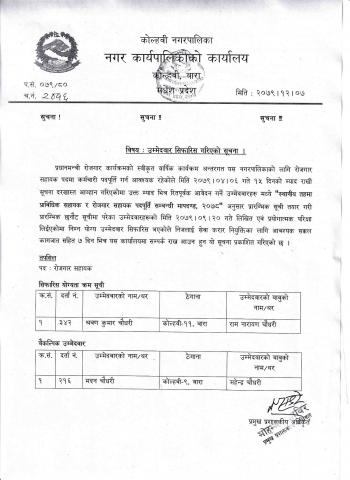 कोल्हवी नगरपालिका
नगर कार्यपालिकाको कार्यालय
कोल्हवी, बारा
मधेश प्रदेश
प.सं. ०७९/८०
च.नं.
मिति : २०७९।१२।०७
सूचना ! सूचना !! सूचना !!!
विषय : उम्मेदवार सिफारिस गरिएको सूचना ।
प्रधानमन्त्री रोजगार कार्यक्रमको स्वीकृत वार्षिक कार्यक्रम अन्तरगत यस नगरपालिकाको लागि रोजगार
सहायक पदमा कर्मचारी पदपूर्ति गर्न आवश्यक रहेकोले मिति २०७९।०४।०६ गते १५ दिनको म्याद राखी
सूचना दरखास्त आव्हान गरिएकोमा उक्त म्याद भित्र रितपूर्वक आवेदन गर्ने उम्मेदवारहरु मध्ये "स्थानीय तहमा
प्राविधिक सहायक र रोजगार सहायक पदपूर्ति सम्बन्धी मापदण्ड, २०७८" अनुसार प्रारम्भिक सूची तयार गरी
प्रारम्भिक छनौट सूचीमा परेका उम्मेदवारहरुको मिति २०७९।०९।२० गते लिखित एवं प्रयोगात्मक परिक्षा
लिईएकोमा निम्न योग्य उम्मेदवार सिफारिस भएकोले निजलाई सेवा करार नियुक्तिका लागि आवश्यक सक्कल
कागजात सहित ७ दिन भित्र यस कार्यालयमा सम्पर्क राख्न आउन हुन यो सूचना प्रकाशित गरिएको छ ।
तपसिल
पद : रोजगार सहायक
सिफारिस योग्यता क्रम सूची
क्र.सं. दर्ता नं. उम्मेदवारको नाम/थर ठेगाना उम्मेदवारको बाबुको नाम/थर
१ ३४२ श्रवण कुमार चौधरी कोल्हवी-११, बारा राम नारायण चौधरी
वैकल्पिक उम्मेदवार
क्र.सं. दर्ता नं. उम्मेदवारको नाम/थर ठेगाना उम्मेदवारको बाबुको नाम/थर
१ २१६ मदन चौधरी कोल्हवी-९, बारा महेन्द्र चौधरी
प्रमुख प्रशासकीय अधिकृत